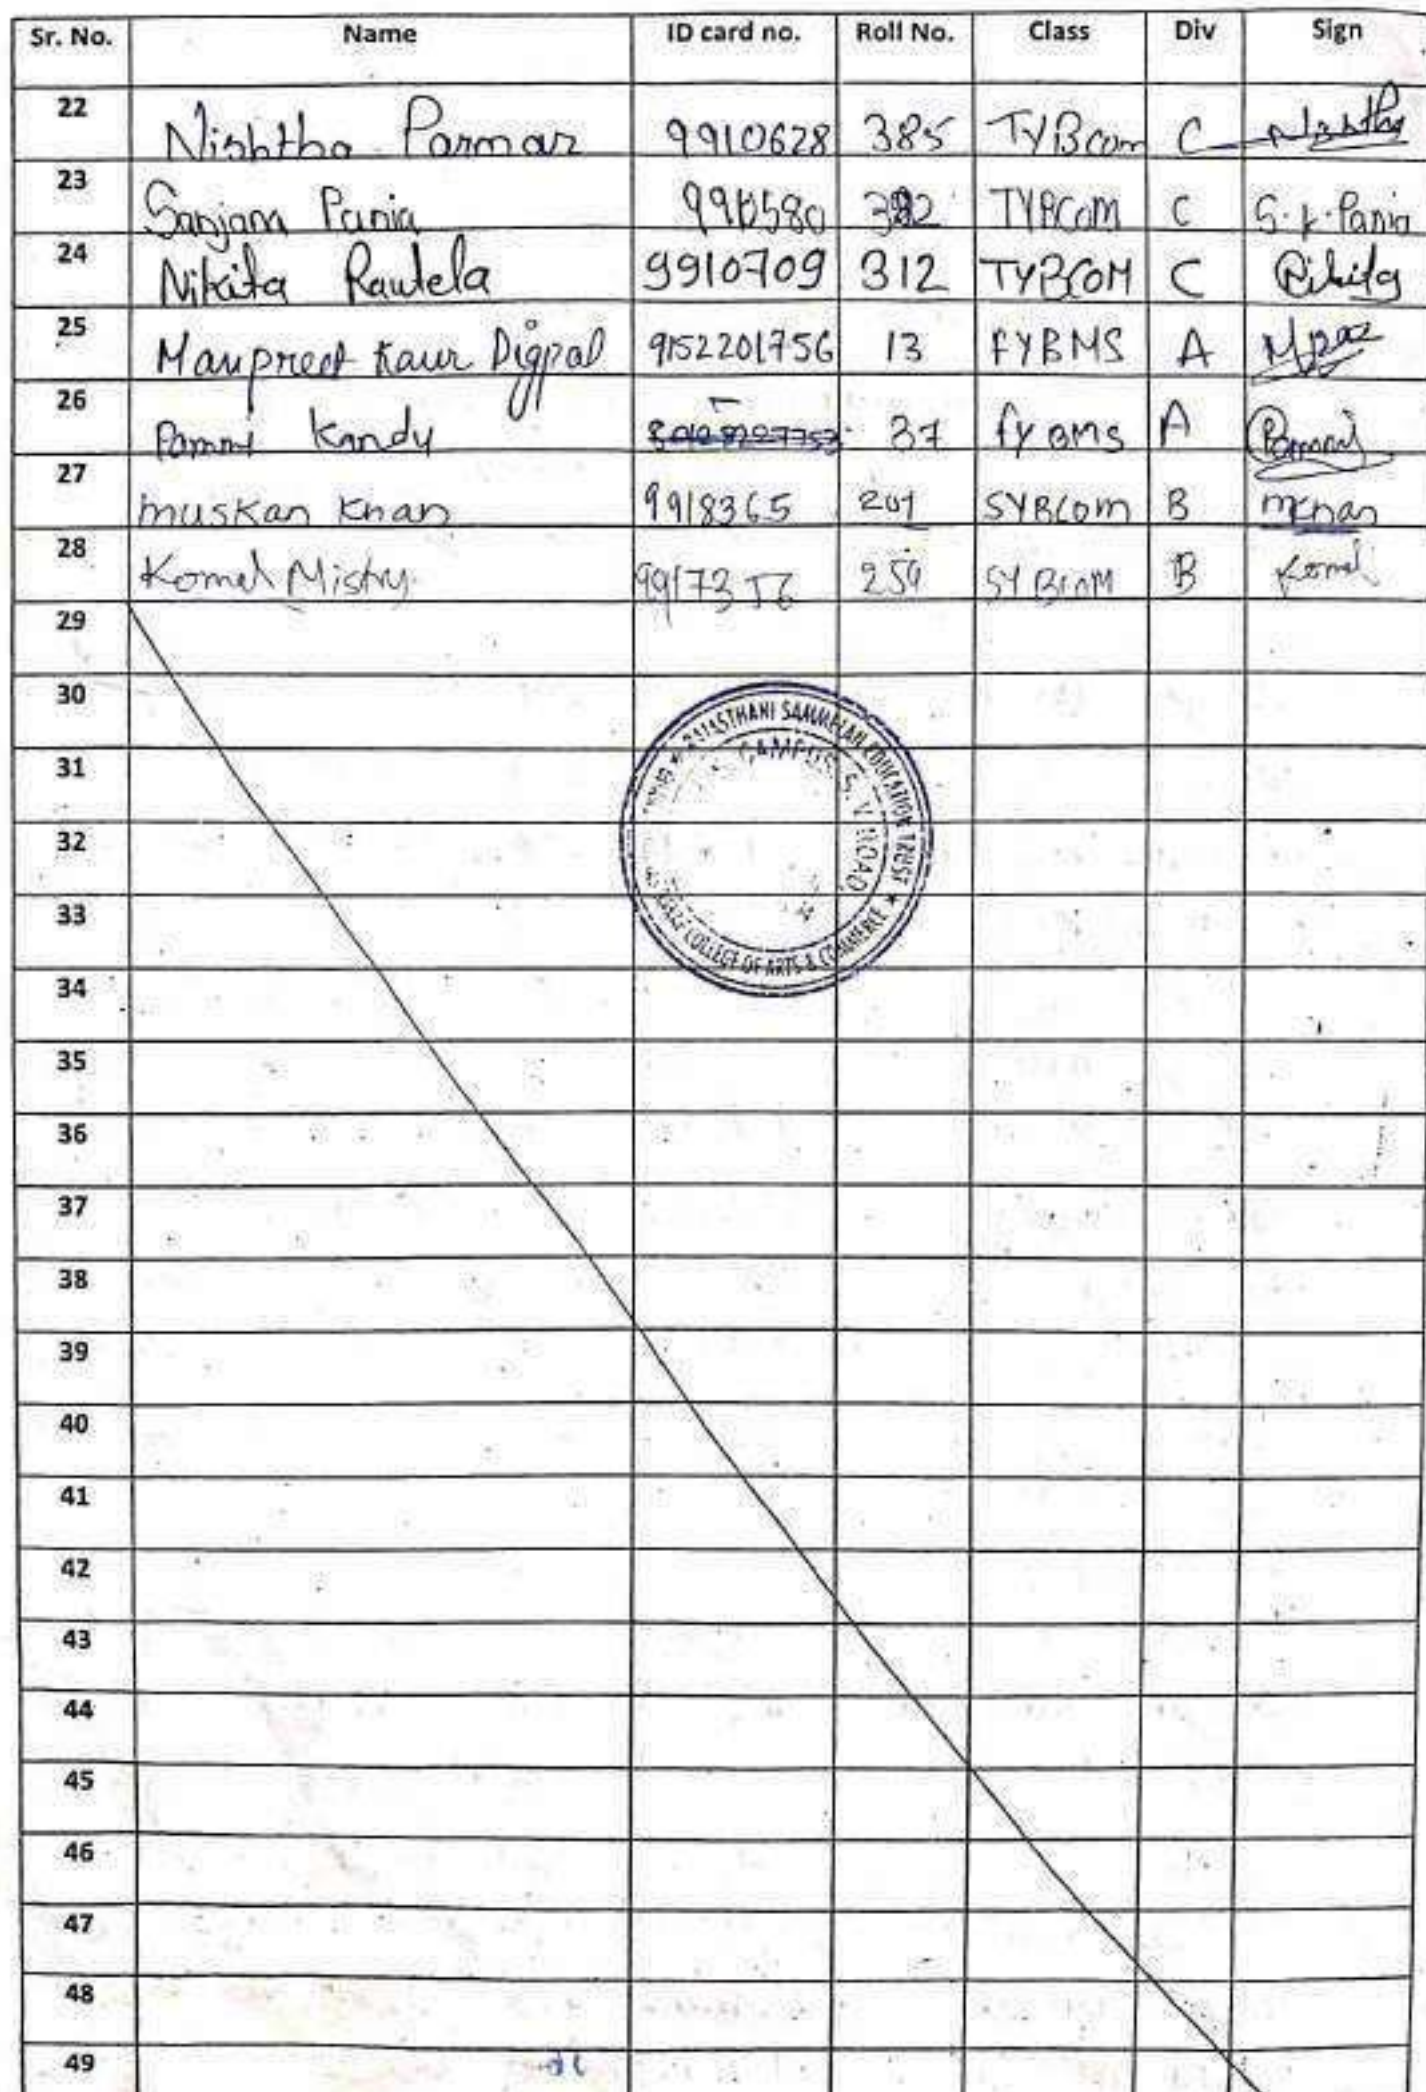 Sr. No. Name ID card no. Roll No. Class Div Sign
22 Nishtha Parmar 9910628 385 TYBcom C Nishtha
23 Sanjam Pania TYBCOM C S.k.Pania
24 Nikita Rautela 9910709 312 TYBCOM C
25 Manpreet Kaur Digpal 9152201756 13 FYBMS A
26 Pammi Kandu 37 fyBMS A Pammi
27 muskan Khan 9918365 201 SYBCOM B mkhan
28 Komal Mistry 9917356 SYBCOM B Komal
29
30
31
32
33
34
35
36
37
38
39
40
41
42
43
44
45
46
47
48
49
RAJASTHANI SAMMELAN EDUCATION TRUST ★
COLLEGE OF ARTS & COMMERCE ★
CAMPUS, S. V. ROAD,